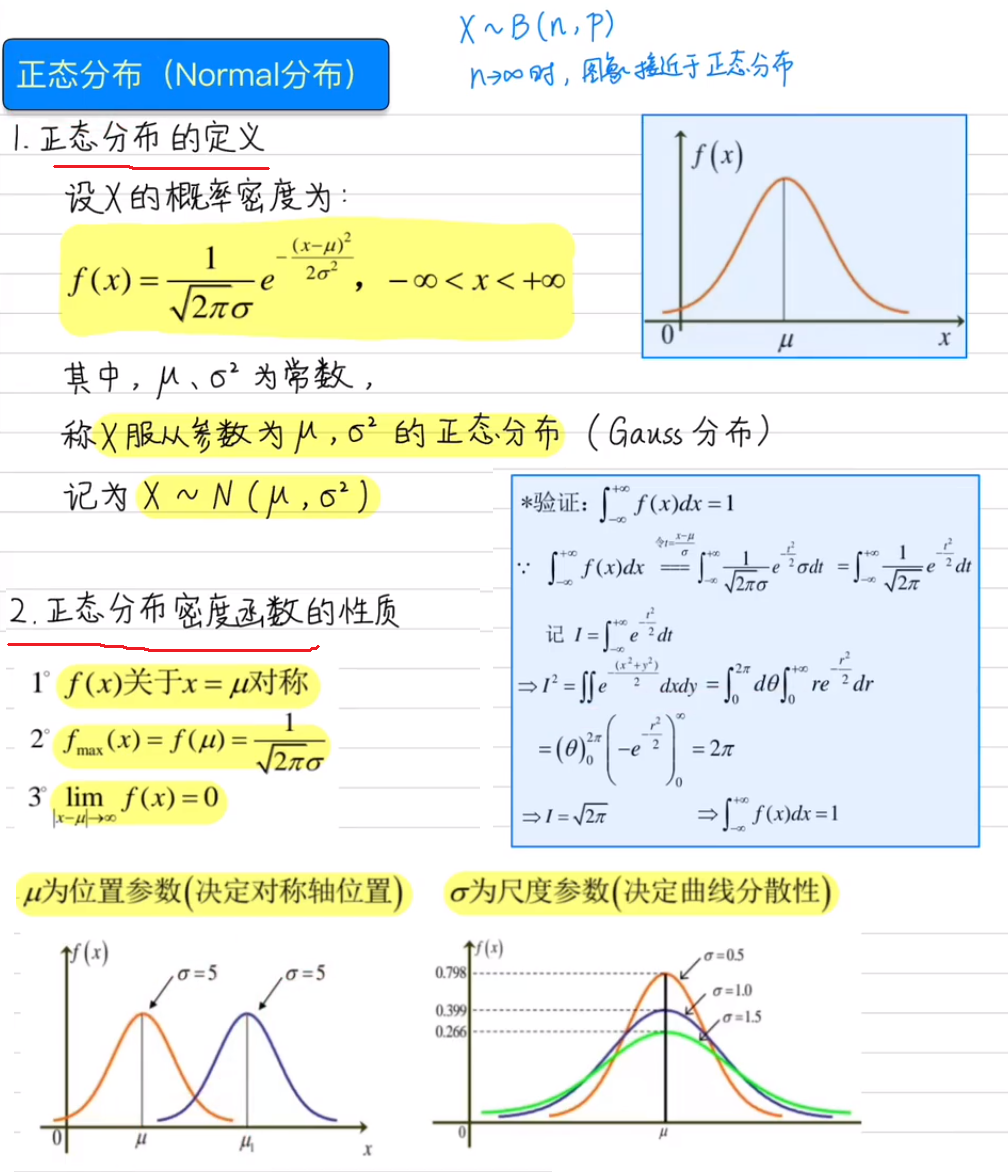 X ~ B(n, p)
n→∞时, 图象接近于正态分布
正态分布（Normal分布）
1. 正态分布的定义
设X的概率密度为:
f(x) = \frac{1}{\sqrt{2π}σ} e^{-\frac{(x-μ)^2}{2σ^2}}, -∞ < x < +∞
f(x)
0 μ x
其中, μ、σ² 为常数,
称X服从参数为μ, σ² 的正态分布 (Gauss分布)
记为 X ~ N(μ, σ²)
*验证: ∫_{-∞}^{+∞} f(x)dx = 1
∵ ∫_{-∞}^{+∞} f(x)dx \overset{令t=\frac{x-μ}{σ}}{===} ∫_{-∞}^{+∞} \frac{1}{\sqrt{2π}σ} e^{-\frac{t^2}{2}} σdt = ∫_{-∞}^{+∞} \frac{1}{\sqrt{2π}} e^{-\frac{t^2}{2}} dt
记 I = ∫_{-∞}^{+∞} e^{-\frac{t^2}{2}} dt
⇒ I² = ∬ e^{-\frac{(x^2+y^2)}{2}} dxdy = ∫_0^{2π} dθ ∫_0^{+∞} re^{-\frac{r^2}{2}} dr
= (θ)_0^{2π} (-e^{-\frac{r^2}{2}})_0^{∞} = 2π
⇒ I = \sqrt{2π} ⇒ ∫_{-∞}^{+∞} f(x)dx = 1
2. 正态分布密度函数的性质
1° f(x)关于x = μ对称
2° f_{max}(x) = f(μ) = \frac{1}{\sqrt{2π}σ}
3° \lim_{|x-μ|→∞} f(x) = 0
μ为位置参数(决定对称轴位置)
f(x)
σ=5 σ=5
0 μ μ₁ x
σ为尺度参数(决定曲线分散性)
f(x)
σ=0.5
0.798
σ=1.0
0.399
σ=1.5
0.266
0 μ